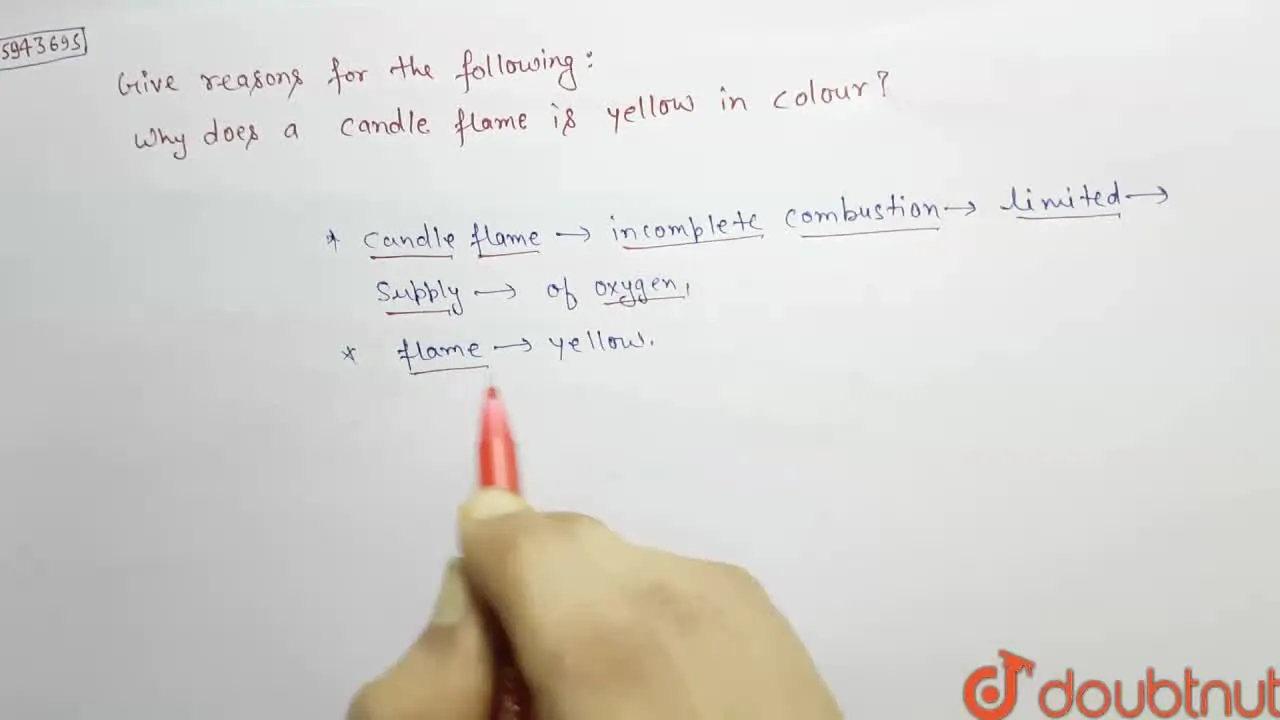 5943695
Give reasons for the following:
Why does a candle flame is yellow in colour?
* candle flame → incomplete combustion → limited →
supply → of oxygen,
* flame → yellow.
doubtnut